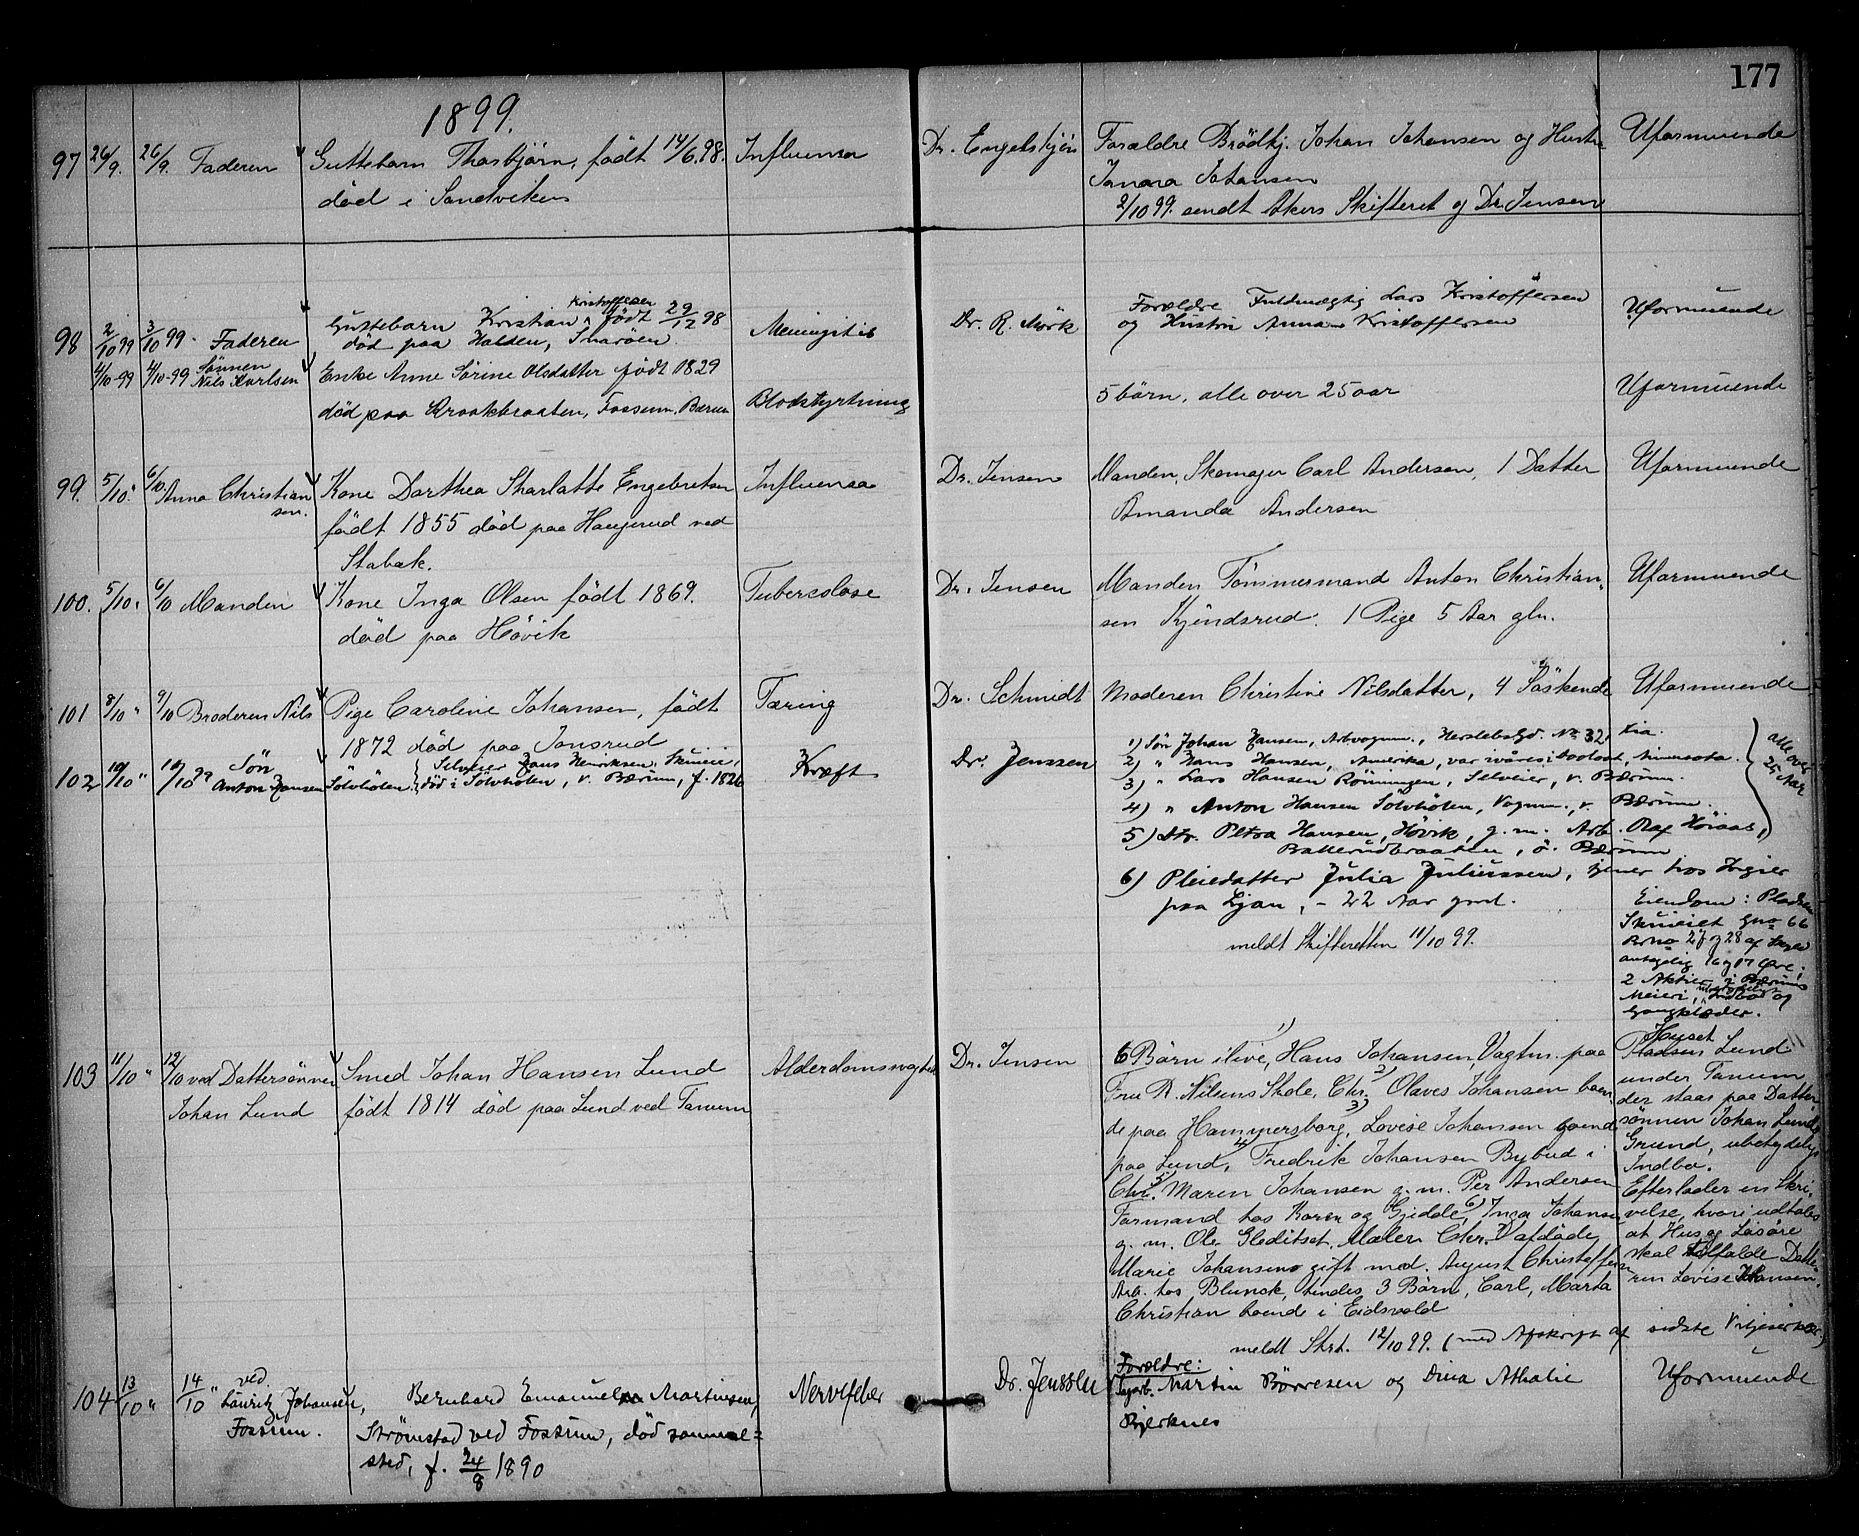 177
1899.
97 26/9. 26/9. Faderen Guttebarn Thorbjørn, født 14/6.98. Influensa Dr. Engelskjøn Forældre Brödkj. Johan Johansen og Hustru Uformuende
død i Sandviken Johansen
2/10 99. sendt Akers Skifteret og Dr. Jensen
98 2/10 99 3/10 99 Faderen Guttebarn Kristian Kristoffersen født 29/12 98 Meningitis Dr. R. Mørk Forældre Fuldmægtig Lars Kristoffersen Uformuende
død paa Halden, Snarøen. og Hustru Anna Kristoffersen
4/10-99 4/10-99 Sønnen Nils Karlsen Enke Anne Sørine Olsdatter født 1829
død paa Kraakbraaten, Fossum, Bærum Blodstyrtning 5 børn, alle over 25 aar Uformuende
99. 5/10. 6/10. Anna Christiansen. Kone Dorthea Sharlotte Engebretsen Influensa Dr. Jensen Manden, Skomager Carl Andersen, 1 Datter Uformuende
født 1855 død paa Haugerud ved Amanda Andersen
Stabæk.
100. 5/10. 6/10 Manden Kone Inga Olsen født 1869. Tuberculose Dr. Jensen Manden Tømmermand Anton Christian- Uformuende
død paa Høvik sen Kjindsrud. 1 Pige 5 Aar glm.
101 8/10 " 9/10 Broderen Nils Pige Caroline Johansen, født Tæring Dr. Schmidt Moderen Christine Nilsdatter, 4 Søskende Uformuende
1872 død paa Jonsrud
102 10/10 " 10/10 99 Søn Anton Hansen Sølvhølen. Selveier Hans Henriksen Skuiei, død i Sølvhølen, v. Bærum, f. 1826 Kræft Dr. Jenssen
1) Søn Johan Hansen, Arbvognm., Herslebsgd. No 32, Kra.
2) " Hans Hansen, Amerika, var ivåres i Minnesota.
3) " Lars Hansen Rønningen, Selveier, v. Bærum.
4) " Anton Hansen Sølvhølen, Vognm., v. Bærum.
5) Dtr. Petra Hansen, Høvik, g. m. Arb. Olaf Høiaas,
Ballerudbraaten, ö. Bærum
alle over 25 Aar
6) Pleiedatter Julia Juliussen, tjener hos
paa Ljan, - 22 Aar gml.
meldt Skifteretten 11/10 99.
Eiendom: Pladsen
Skuieiet Gno 66
Brno 27 og 28 af Skyld
antagelig 16 og 17 Øre;
2 Aktier i Bærums
Meieri, ubetydeligt Indbo og
Gangklæder.
103 11/10 " 12/10 ved Dattersønnen Smed Johan Hansen Lund Alderdomssvaghed Dr. Jensen 6 Børn ilive, 1) Hans Johansen, Vagtm. paa
Johan Lund født 1814 død paa Lund ved Tanum Fru R. Nilsens Skole, Chr. 2) Olaves Johansen boen-
de paa Hammersborg, 3) Lovise Johansen boende
paa Lund, 4) Fredrik Johansen Bybud i
Chr. 5) Maren Johansen g. m. Per Andersen
Formand hos Koren og Gjedde, 6) Inga Johansen
g. m. Ole Gleditsch, Maler Chr. Vafdøde
Marie Johansen gift med. August Christoffersen
Arb. hos Blunck, hendes 3 Børn, Carl, Marta
Christian boende i Eidsvold
meldt Skrt. 12/10 99. (med Afskrift af sidste Viljeserklær.)
Huset
Pladsen Lund
under Tanum
der staar paa Datter
sønnen Johan Lunds
Grund, ubetydelig
Indbo.
Efterlader en Skri-
velse, hvori udtales
at Hus og Løsøre
skal tilfalde Datte-
ren Lovise Johansen.
104 13/10 " 14/10 " ved Lauritz Johansen, Bernhard Emanuel Martinsen, Nervefeber Dr. Jenssen Forældre: Martin Børresen og Dina Athalie Uformuende
Fossum. Strømstad ved Fossum, død samme- Bjerknes
sted, f. 24/8 1890